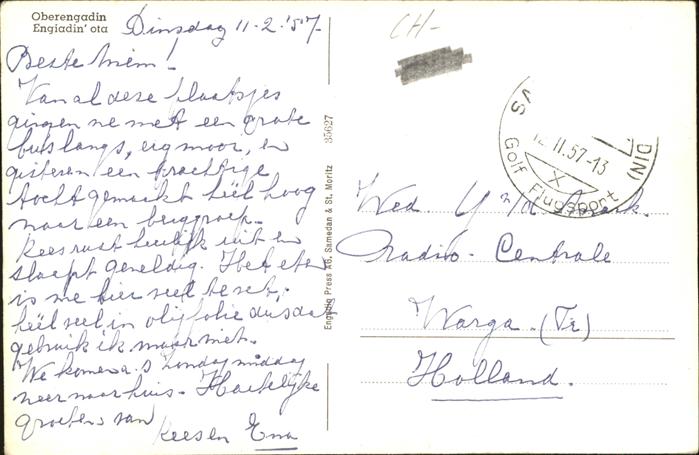 Oberengadin
Engiadin' ota
Dinsdag 11-2-'57.
Beste Miem!
Van al deze plaatsjes
gingen we met een grote
bus langs, erg mooi, en
gisteren een prachtige
tocht gemaakt héél hoog
naar een berggroep.
Kees rust heerlijk uit en
slaapt geweldig. Het eten
is me hier veel te vet,
héél veel in olijfolie dus dat
gebruik ik maar niet.
We komen a.s. Zondagmiddag
weer naar huis. Hartelijke
groeten van
Kees en Ena
35627
Engadin Press AG, Samedan & St. Moritz
CH-
12.II.57-13
DIN)
X
Golf Flugsport
Wed. Y v/d
Radio-Centrale
Warga (Fr)
Holland.